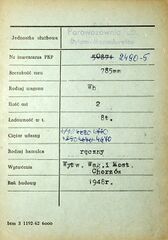 Jednostka służbowa Parowozownia
Nr inwentarza PKP 2480-5
Szerokość toru 785mm
Rodzaj wagonu Wb
Ilość osi 2
Ładowność w t. 8t.
Ciężar własny
Rodzaj hamulca ręczny
Wytwórnia Wytw. Wag. i Most.
Chorzów
Rok budowy 1948r.